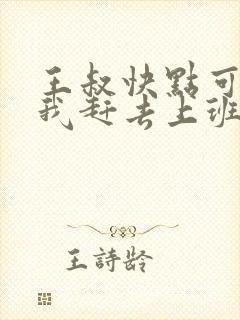 王叔快點可
我赶去上班
王詩龄